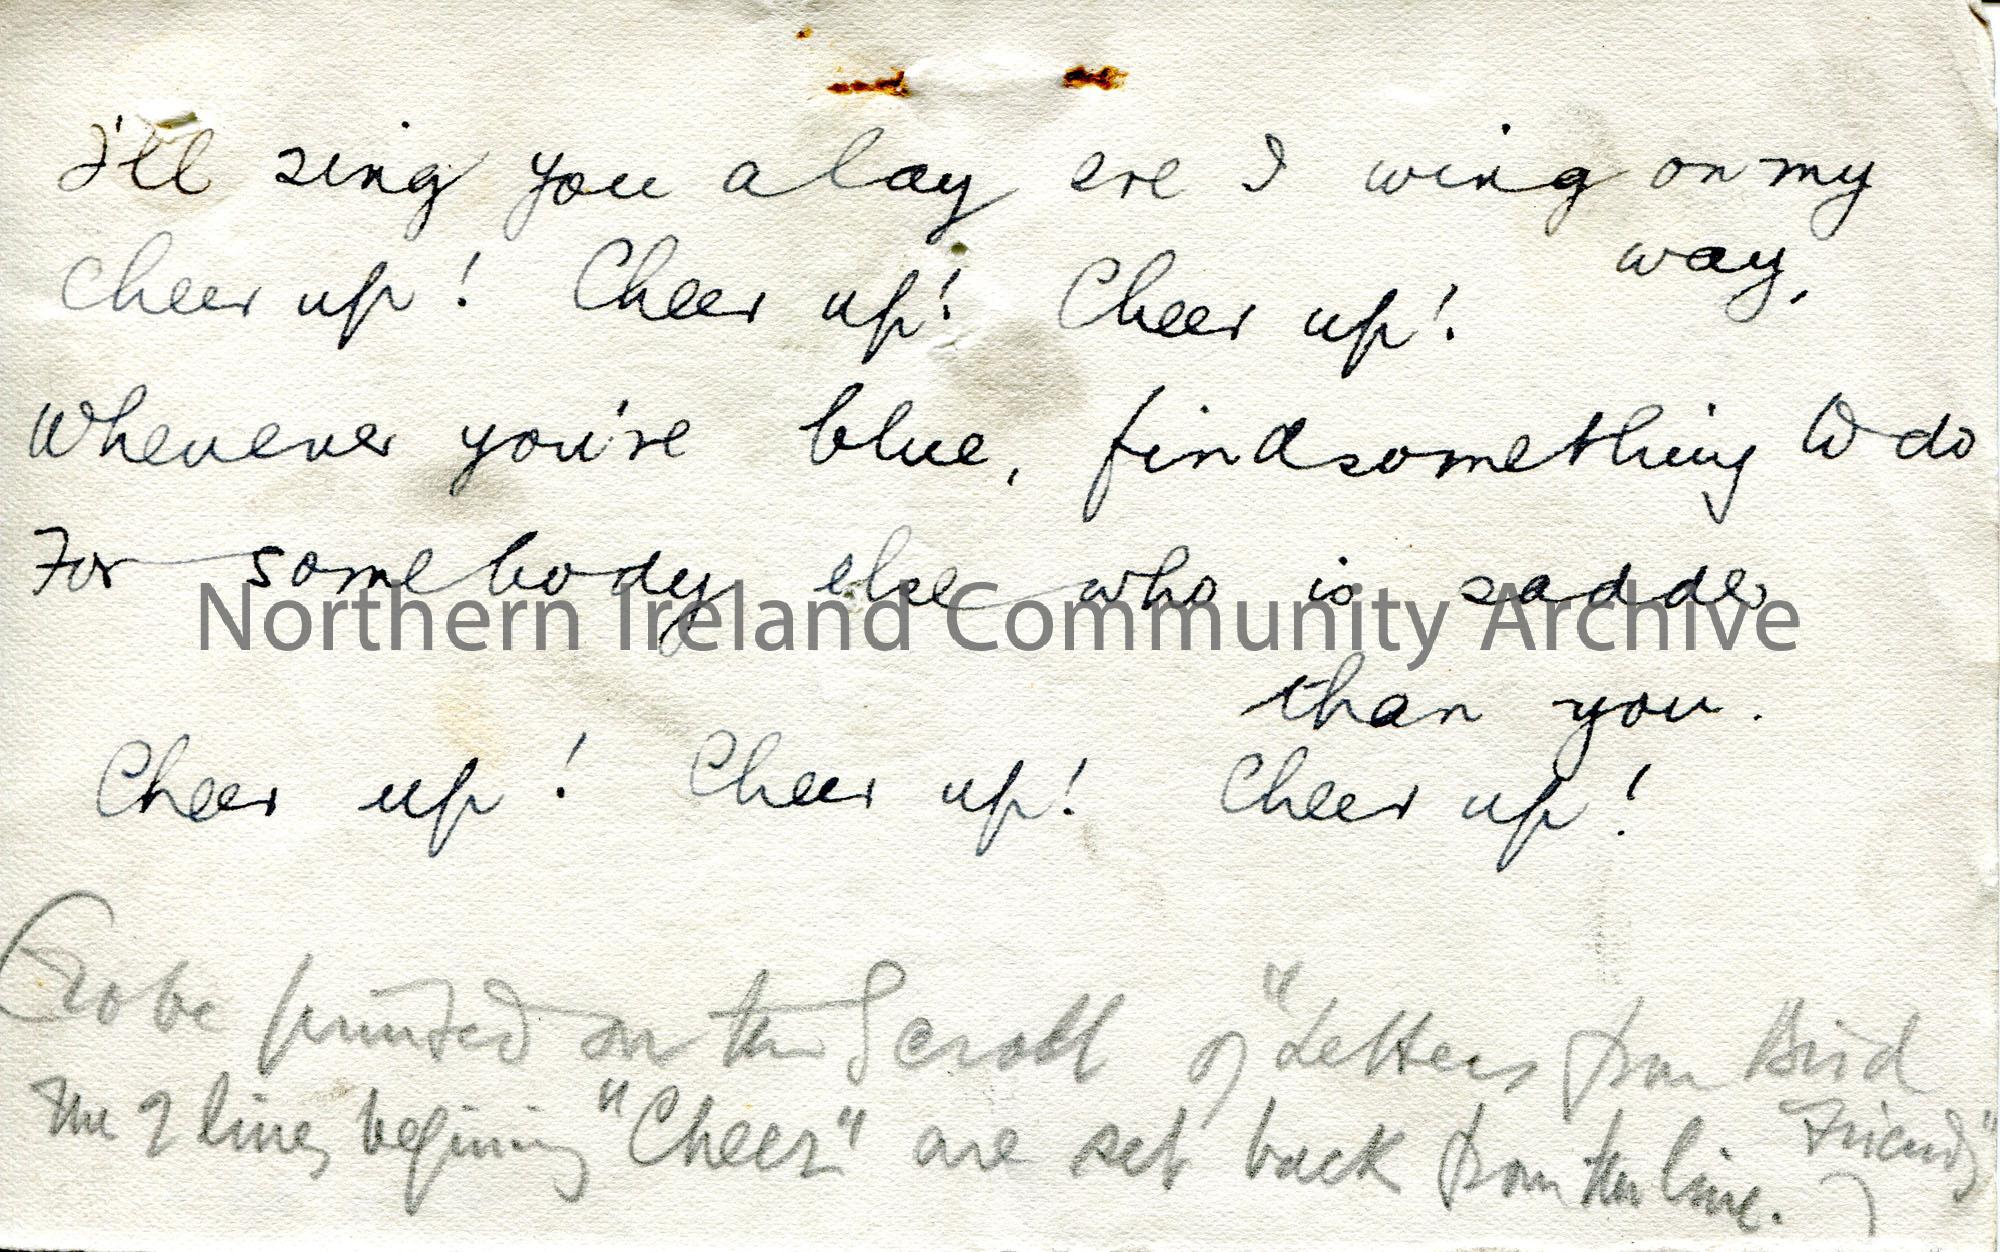 I'll sing you a lay ere I wing on my
way,
Cheer up! Cheer up! Cheer up!
Whenever you're blue, find something to do
For somebody else who is sadder
Northern Ireland Community Archive
than you.
Cheer up! Cheer up! Cheer up!
(To be printed on the Scroll of "Letters from Bird
Friends"
The 2 lines begining "Cheer" are set back from the line.)